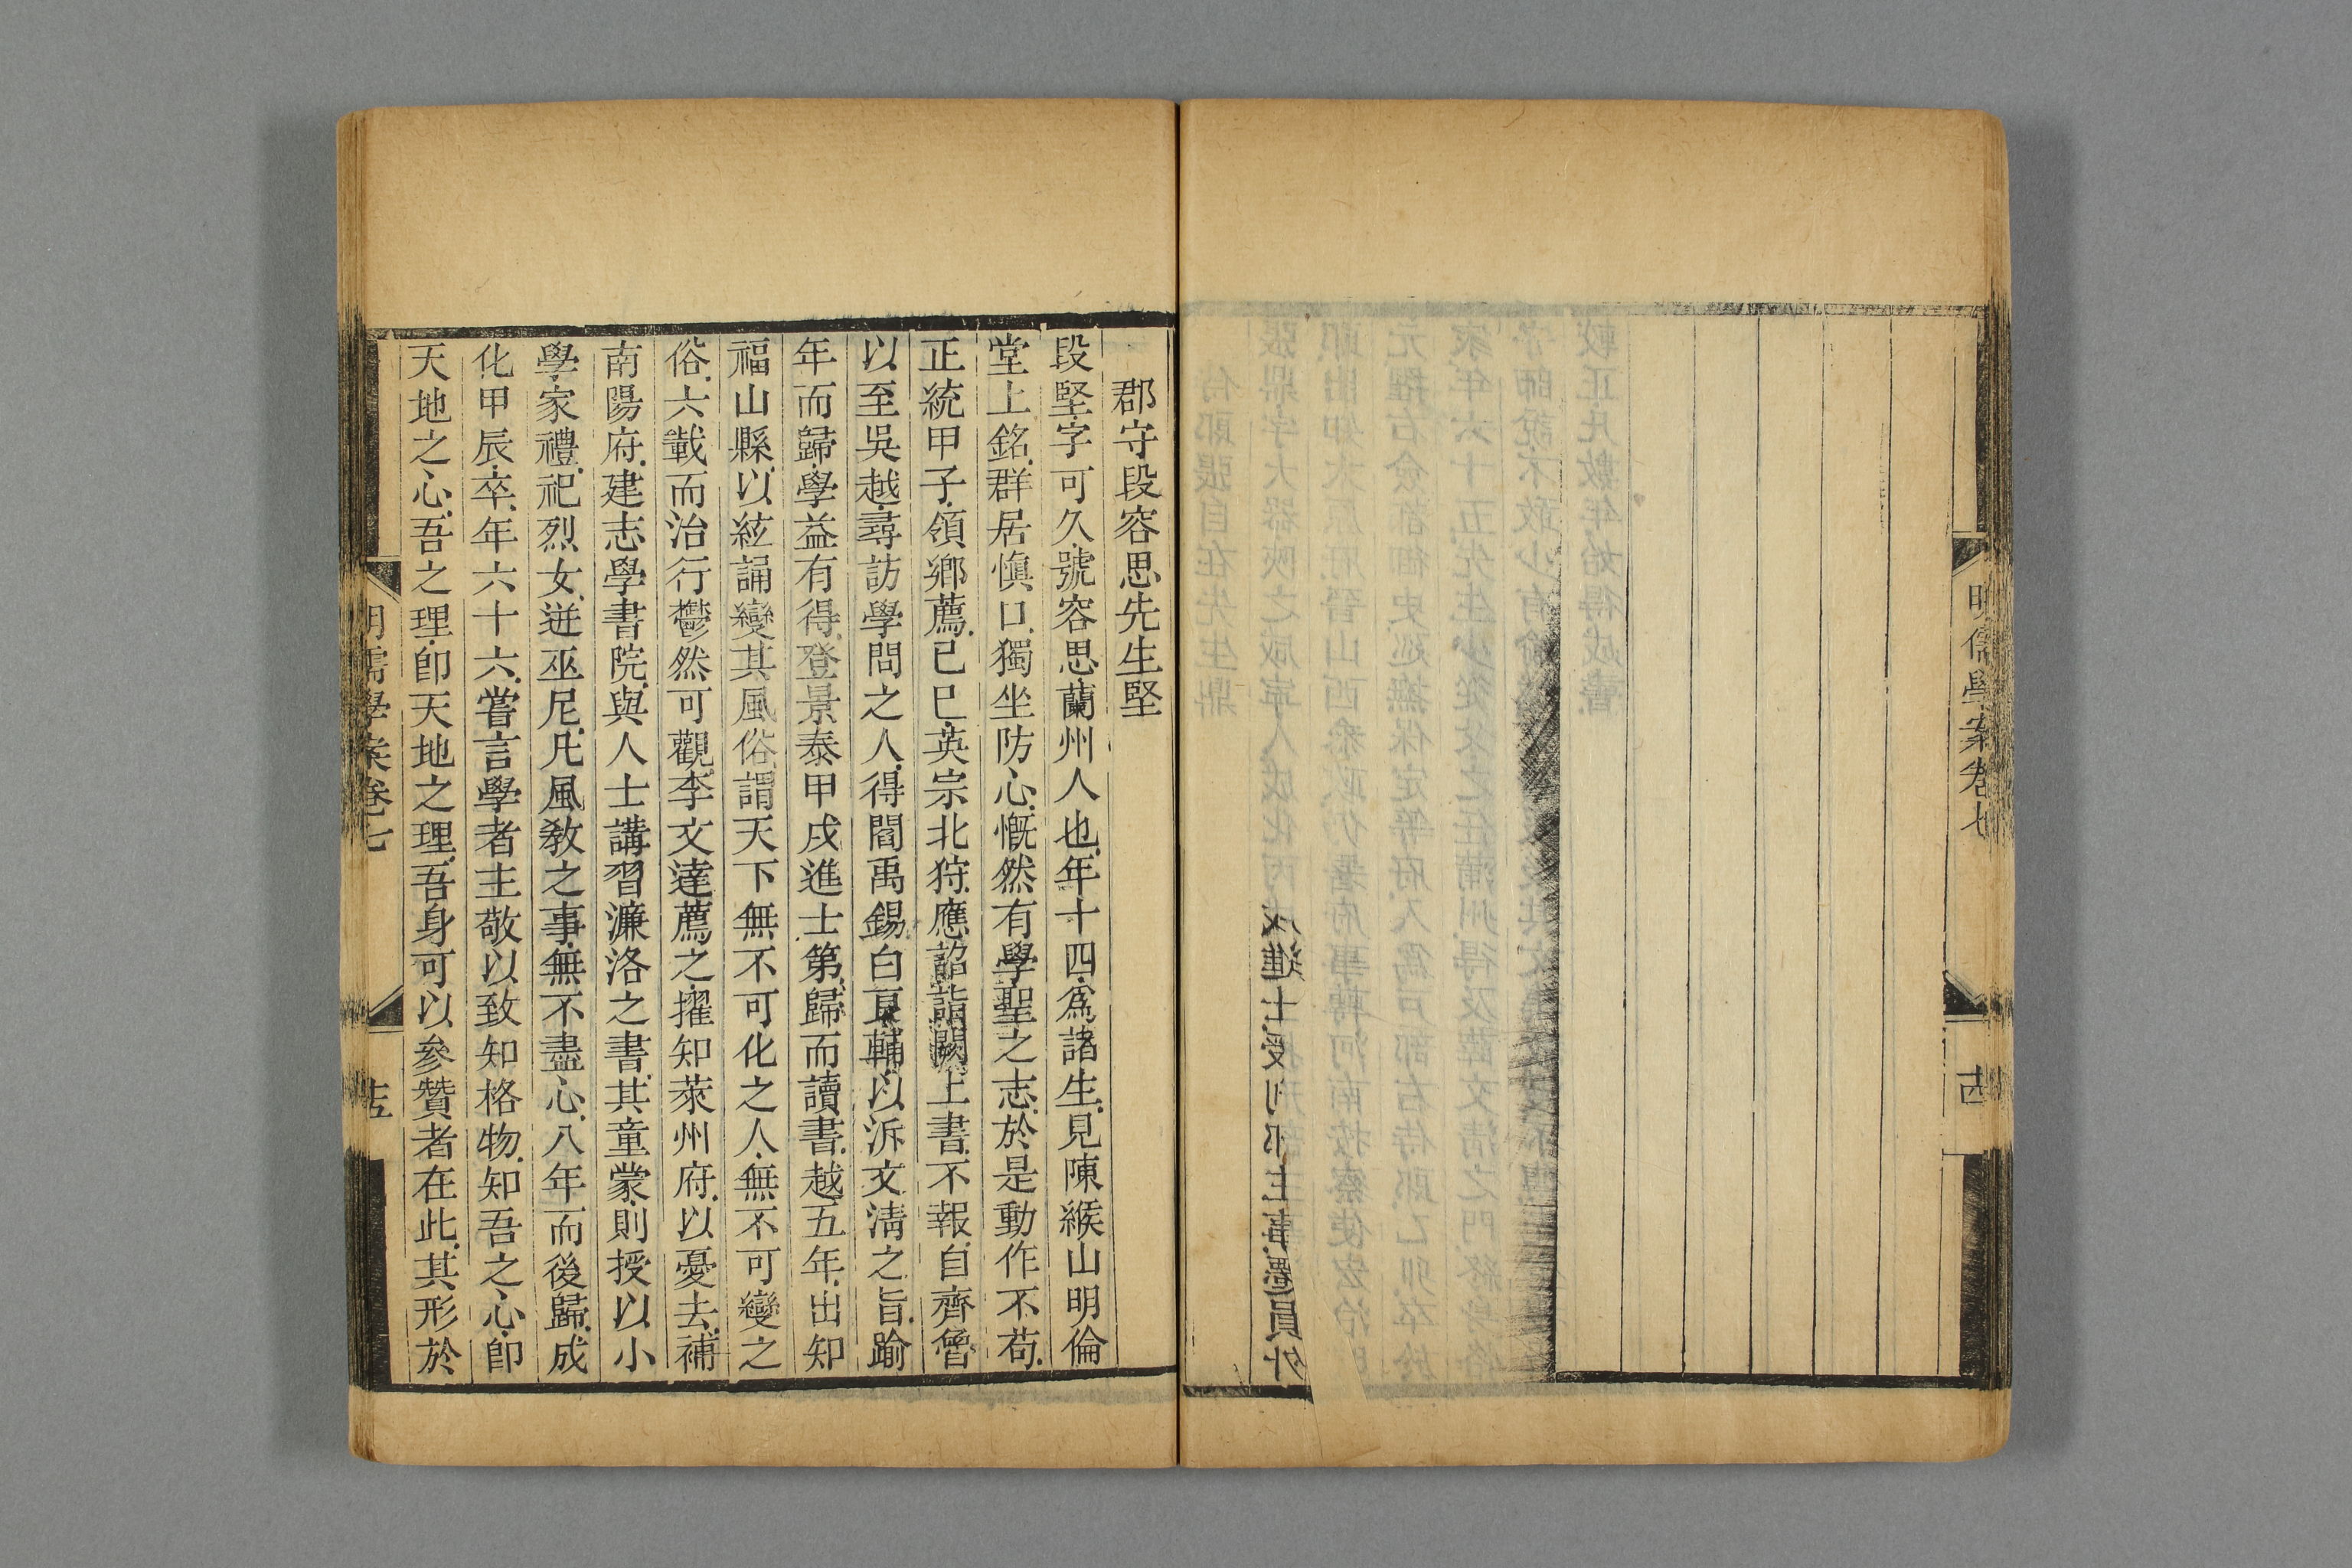 明儒學案卷七
郡守段容思先生堅
段堅字可久號容思蘭州人也年十四爲諸生見陳緱山明倫
堂上銘群居愼口獨坐防心慨然有學聖之志於是動作不苟
正統甲子領鄉薦己巳英宗北狩應詔詣闕上書不報自齊魯
以至吳越尋訪學問之人得閻禹錫白夏輔以泝文淸之旨踰
年而歸學益有得登景泰甲戌進士第歸而讀書越五年出知
福山縣以絃誦變其風俗謂天下無不可化之人無不可變之
俗六載而治行鬱然可觀李文達薦之擢知萊州府以憂去補
南陽府建志學書院與人士講習濂洛之書其童蒙則授以小
學家禮祀烈女迸巫尼凡風敎之事無不盡心八年而後歸成
化甲辰卒年六十六嘗言學者主敬以致知格物知吾之心卽
天地之心吾之理卽天地之理吾身可以參贊者在此其形於
明儒學案卷七